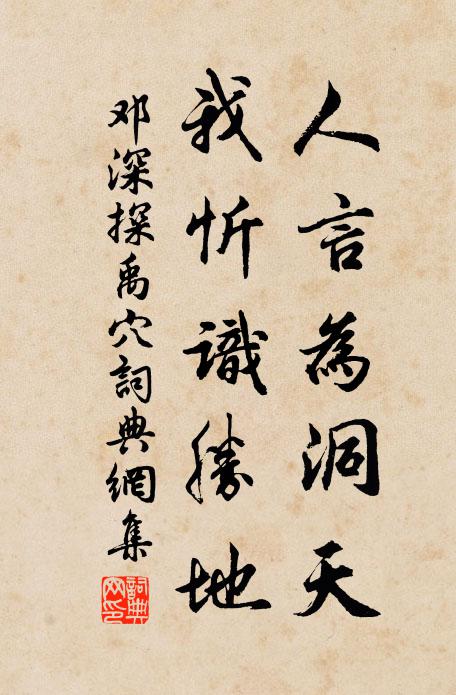 人言為洞天
我忻識勝地
邓深探禹穴詞典網集
詞典網印